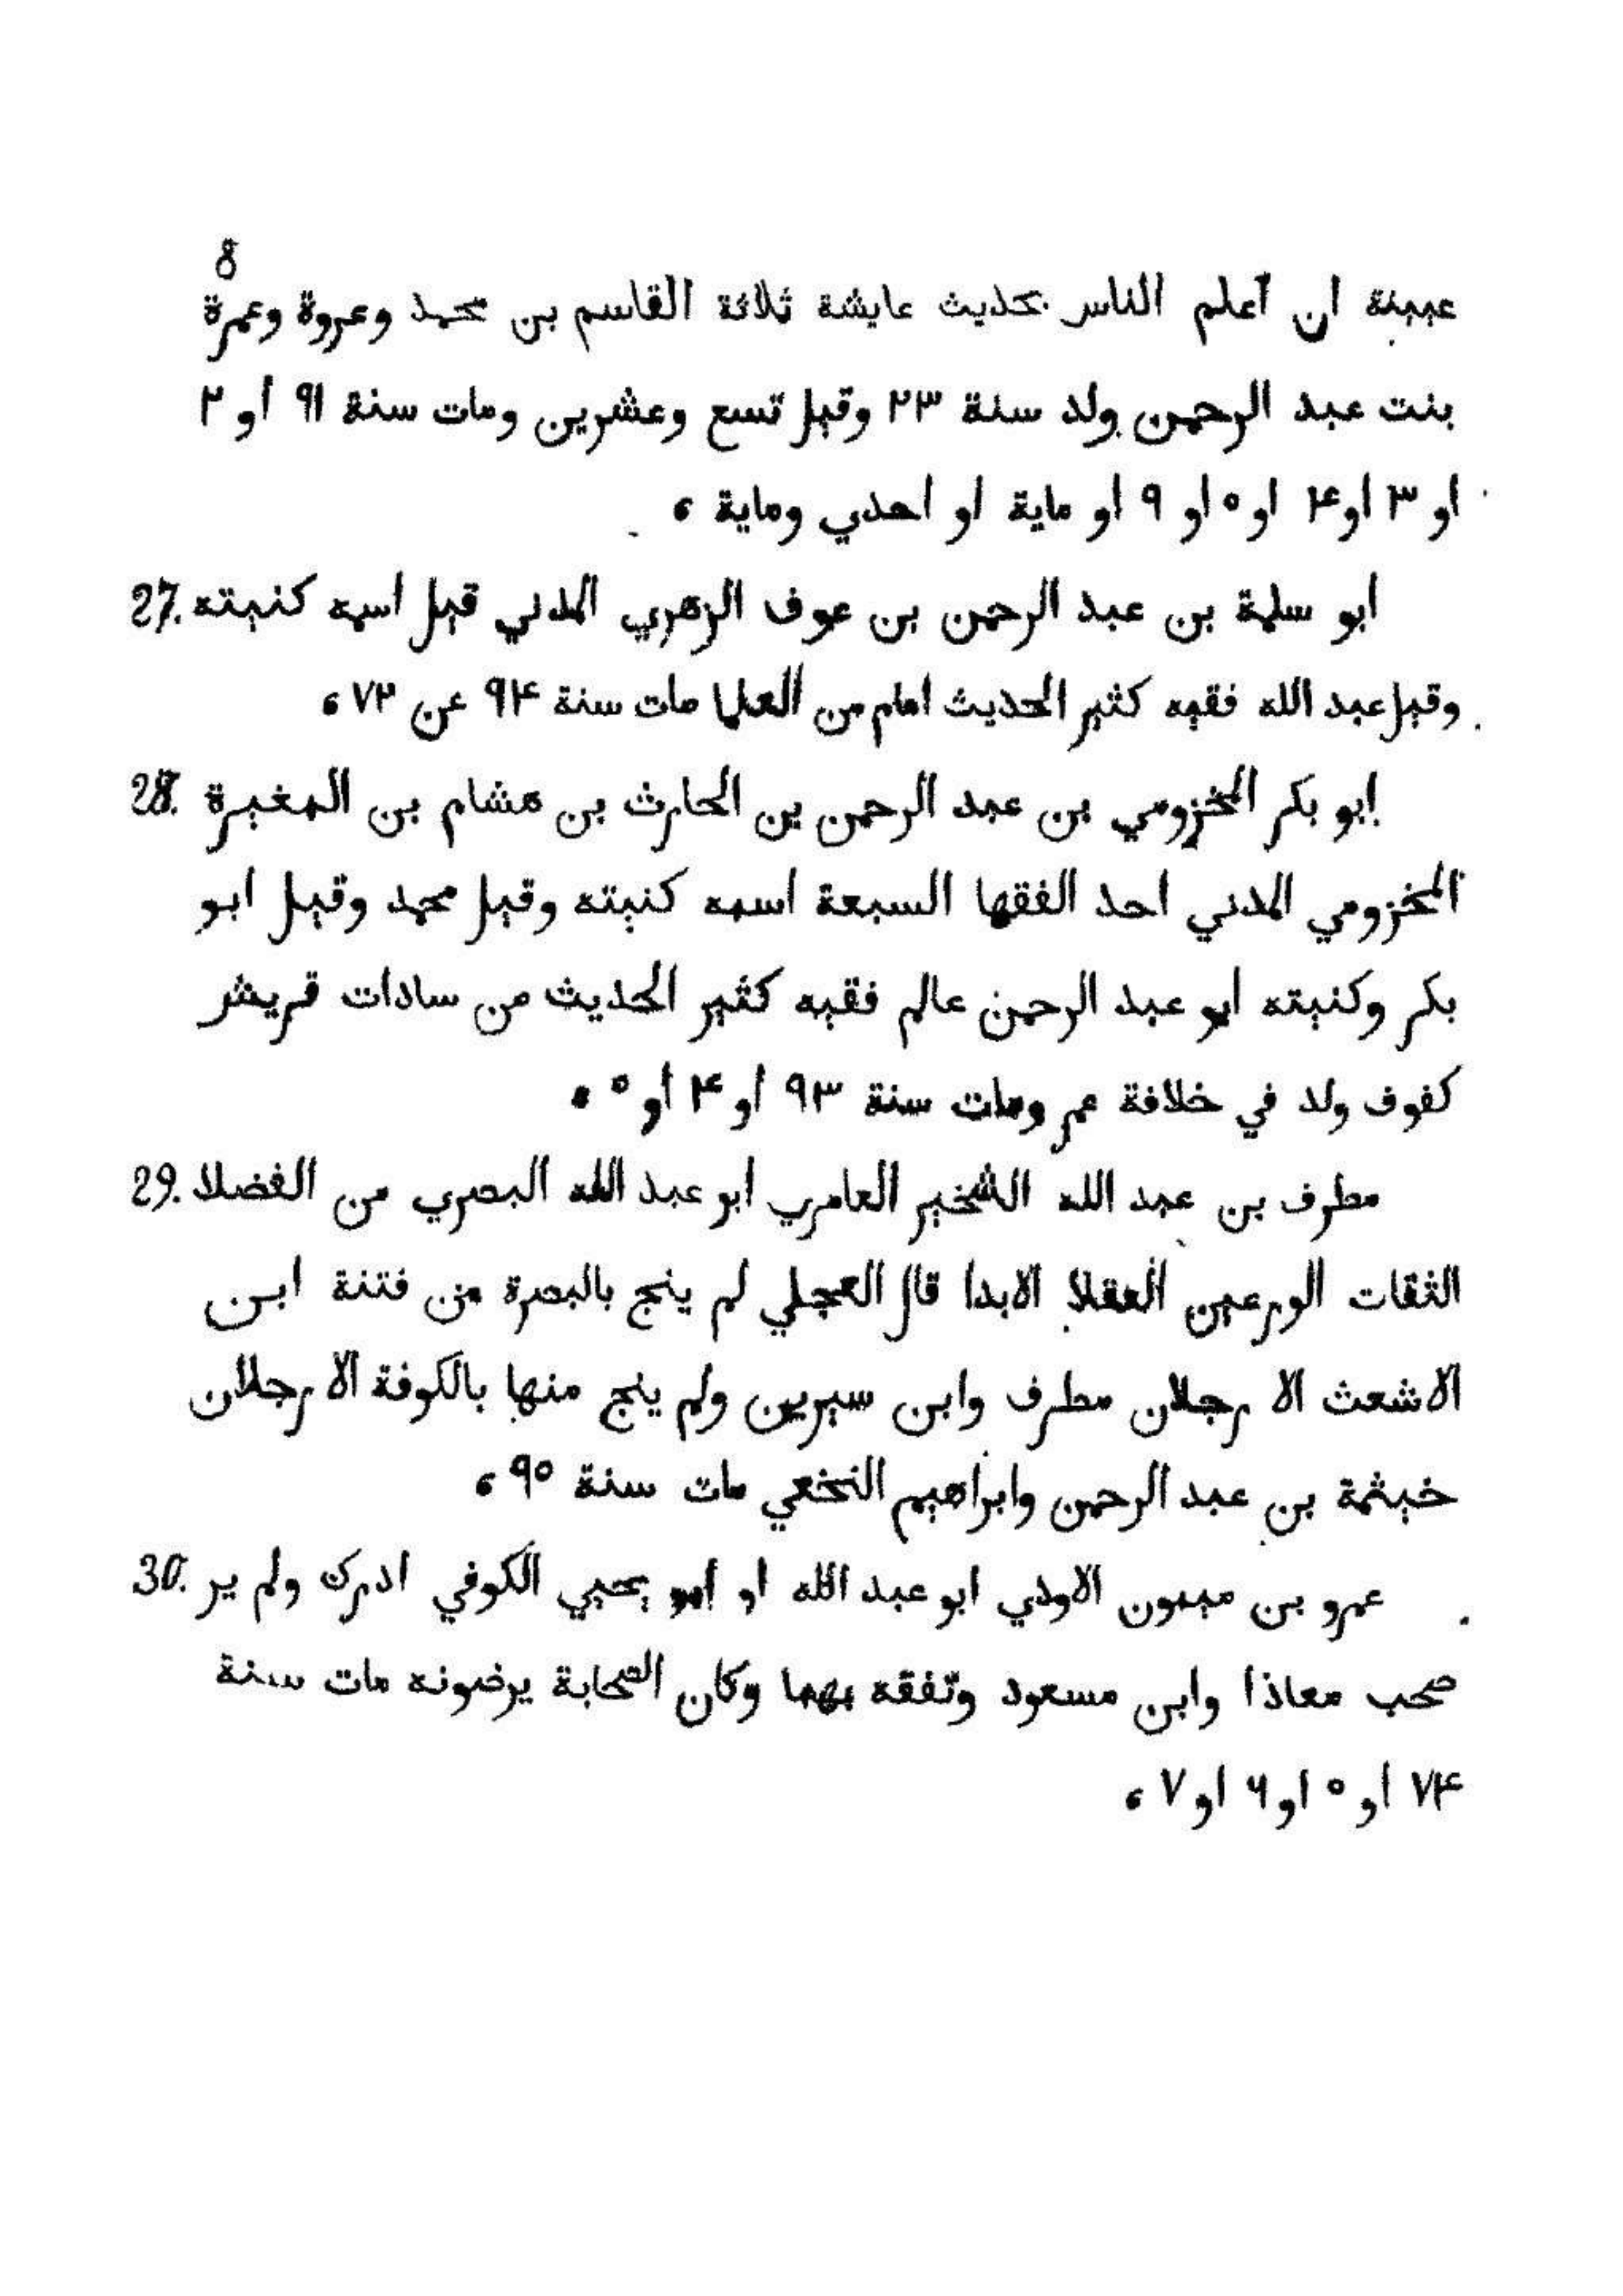 8
عيينة ان أعلم الناس بحديث عايشة ثلاثة القاسم بن محمد وعروة وعمرة
بنت عبد الرحمن ولد سنة ٢٣ وقيل تسع وعشرين ومات سنة ٩١ او ٢
او ٣ او ۴ او ٥ او ٩ او ماية او احدي وماية ،
27. ابو سلمة بن عبد الرحمن بن عوف الزهري المدني قيل اسمه كنيته
وقيل عبد الله فقيه كثير الحديث امام من العلما مات سنة ٩۴ عن ٧٢ ،
28. ابو بكر المخزومي بن عبد الرحمن بن الحارث بن هشام بن المغيرة
المخزومي المدني احد الفقها السبعة اسمه كنيته وقيل محمد وقيل ابو
بكر وكنيته ابو عبد الرحمن عالم فقيه كثير الحديث من سادات قريش
كفوف ولد في خلافة عمر ومات سنة ٩٣ او ۴ او ٥ ،
29. مطرف بن عبد الله الشخير العامري ابو عبد الله البصري من الفضلا
الثقات الورعين العقلا الابدا قال العجلي لم ينج بالبصرة من فتنة ابن
الاشعث الا رجلان مطرف وابن سيرين ولم ينج منها بالكوفة الا رجلان
خيثمة بن عبد الرحمن وابراهيم النخعي مات سنة ٩٥ ،
30. عمرو بن ميمون الاودي ابو عبد الله او ابو يحيي الكوفي ادرك ولم ير
صحب معاذا وابن مسعود وتفقه بهما وكان الصحابة يرضونه مات سنة
٧۴ او ٥ او ٦ او ٧ ،